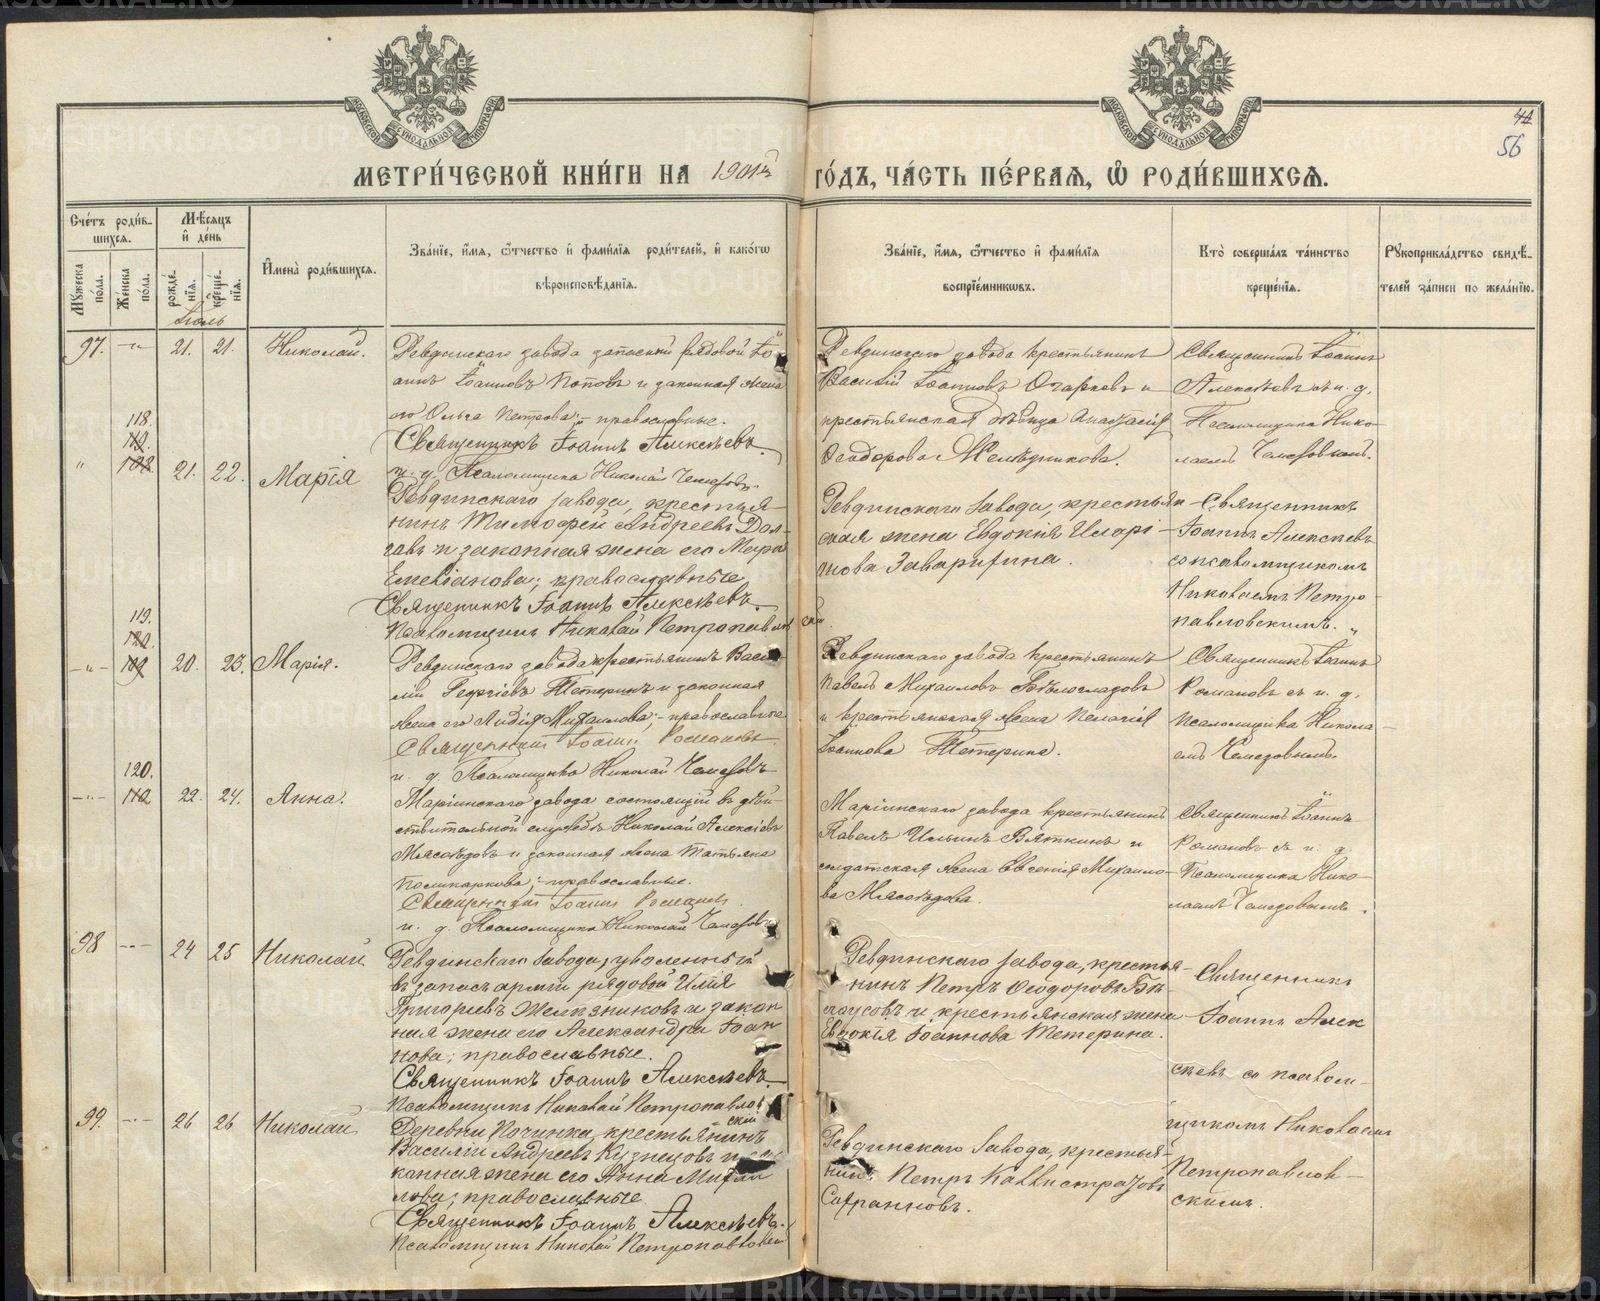 44
56
МЕТРИ́ЧЕСКОЙ КНИ́ГИ НА 1901й ГО́ДЪ, ЧА́СТЬ ПЕ́РВАЯ, Ѽ РОДИ́ВШИХСЯ.
Сче́тъ роди́в-
шихся.
Мꙋ́жеска по́ла.
Же́нска по́ла.
Мѣ́сяцъ и́ де́нь
рожде́нїя.
креще́нїя.
И҆мена̀ роди́вшихся.
Зва́нїе, и҆́мя, ѻ҆́тчество и҆ фами́лїя роди́телей, и҆ како́гѡ
вѣроисповѣ́данїя.
Зва́нїе, и҆́мя, ѻ҆́тчество и҆ фами́лїя
воспрїе́мникѡвъ.
Кто̀ соверша́лъ та́инство
креще́нїя.
Рꙋкоприкла́дство свидѣ́-
телей за́писи по жела́нїю.
Іюль
97. 21. 21. Николай.
Ревдинскаго завода запасный рядовой Іо-
аннъ Іоанновъ Поповъ и законная жена
его Ольга Петрова; православные.
Священникъ Іоаннъ Алексѣевъ.
и. д. Псаломщика Николай Чемезовъ.
Ревдинскаго завода крестьянинъ
Василій Іоанновъ Очарковъ и
крестьянская дѣвица Анастасія
Ѳеодорова Желѣзникова.
Священникъ Іоаннъ
Алексѣевъ съ и. д.
Псаломщика Нико-
лаемъ Чемезовымъ.
118.
" 21. 22. Марія
Ревдинскаго завода, крестья-
нинъ Тимофей Андреевъ Дол-
говъ и законная жена его Марѳа
Емеліанова; православные
Священникъ Іоаннъ Алексѣевъ
Псаломщикъ Николай Петропавловскій.
Ревдинскаго завода, крестьян-
ская жена Евдокія Иларі-
онова Заварихина.
Священникъ
Іоаннъ Алексѣевъ
съ псаломщикомъ
Николаемъ Петро-
павловскимъ.
119.
20. 23. Марія.
Ревдинскаго завода крестьянинъ Васи-
лій Георгіевъ Тетеринъ и законная
жена его Лидія Михаилова; православные
Священникъ Іоаннъ Романовъ
и. д. Псаломщика Николай Чемезовъ
Ревдинскаго завода крестьянинъ
Павелъ Михаиловъ Бѣлоглазовъ
и крестьянская жена Пелагія
Іоаннова Тетерина.
Священникъ Іоаннъ
Романовъ съ и. д.
псаломщика Никола-
емъ Чемезовымъ.
120.
22. 24. Анна.
Маріинскаго завода состоящій въ дѣй-
ствительной службѣ Николай Алексіевъ
Мясоѣдовъ и законная жена Татьяна
Поликарпова; православные.
Священникъ Іоаннъ Романовъ.
и. д. Псаломщика Николай Чемезовъ
Маріинскаго завода крестьянинъ
Павелъ Ильинъ Вяткинъ и
солдатская жена Евгенія Михаило-
ва Мясоѣдова.
Священникъ Іоаннъ
Романовъ съ и. д.
Псаломщика Нико-
лаемъ Чемезовымъ.
98 24 25 Николай
Ревдинскаго завода, уволенный
въ запасъ арміи рядовой Илія
Григорьевъ Желѣзниковъ и закон
ная жена его Александра Іоан
нова; православные.
Священникъ Іоаннъ Алексѣевъ
Псаломщикъ Николай Петропавловскій
Ревдинскаго завода, крестья-
нинъ Петръ Ѳеодоровъ Бѣ-
лоусовъ и крестьянская жена
Евдокія Іоаннова Тетерина.
Священникъ
Іоаннъ Алек
сѣевъ со псалом-
щикомъ Николаемъ
Петропавлов-
скимъ.
99. 26 26 Николай
Деревни Починка, крестьянинъ
Василій Андреевъ Кузнецовъ и за-
конная жена его Анна Михаи
лова; православные
Священникъ Іоаннъ Алексѣевъ.
Псаломщикъ Николай Петропавловскій
Ревдинскаго завода, крестья-
нинъ Петръ Каллистратовъ
Сафанновъ.
METRIKI.GASO-URAL.RU